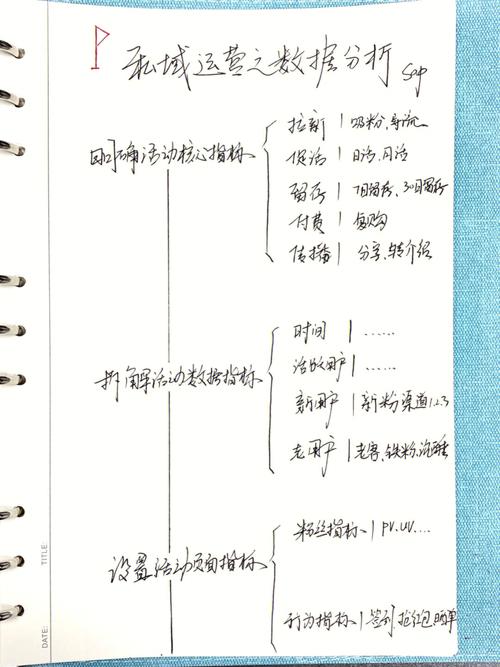 私域运营之数据分析 sop
明确活动核心指标
拉新 | 吸粉、导流
促活 | 日活、月活
留存 | 7日留存、30日留存
付费 | 复购
传播 | 分享、转介绍
拆解活动数据指标
时间 | ......
活跃用户 | ......
新用户 | 新粉渠道1.2.3
老用户 | 老客、铁粉、沉睡
设置活动页面指标
粉丝指标 | PV.UV....
行为指标 | 签到、抢红包、晒单
DATE: TITLE: